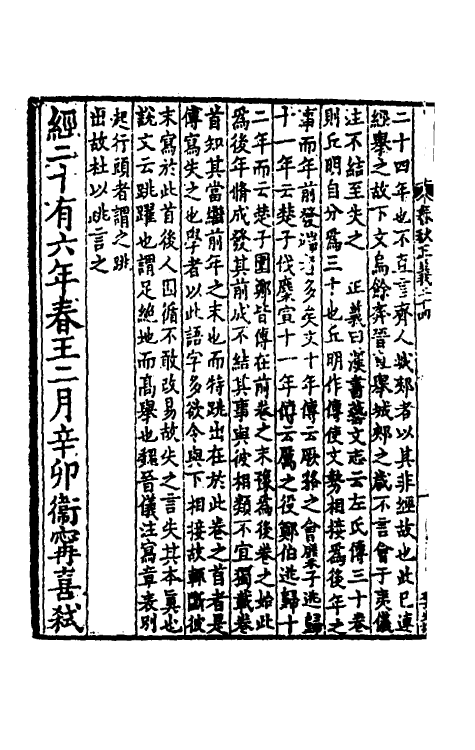 春秋正義二十四
二十四年也不直言齊人城郟者以其非經故也此已連
經舉之故下文烏餘奔晉直舉城郟之歲不言會于夷儀
注不結至失之　正義曰漢書藝文志云左氏傳三十卷
則丘明自分為三十也丘明作傳使文勢相接為後年之
事而年前發端者多矣文十年傳云厥貉之會麇子逃歸
十一年云楚子伐麇宣十一年傳云厲之役鄭伯逃歸十
二年而云楚子圍鄭皆傳在前卷之末豫為後卷之始此
為後年脩成發其前成不結其事與彼相類不宜獨載卷
首知其當繼前年之末也而特跳出在於此卷之首者是
傳寫失之也學者以此語字多欲令與下相接故輒斷彼
末寫於此首後人因循不敢改易故失之言失其本真也
說文云跳躍也謂足絕地而高舉也魏晉儀注寫章表別
起行頭者謂之跳
出故杜以跳言之
經二十有六年春王二月辛卯衞甯喜弒